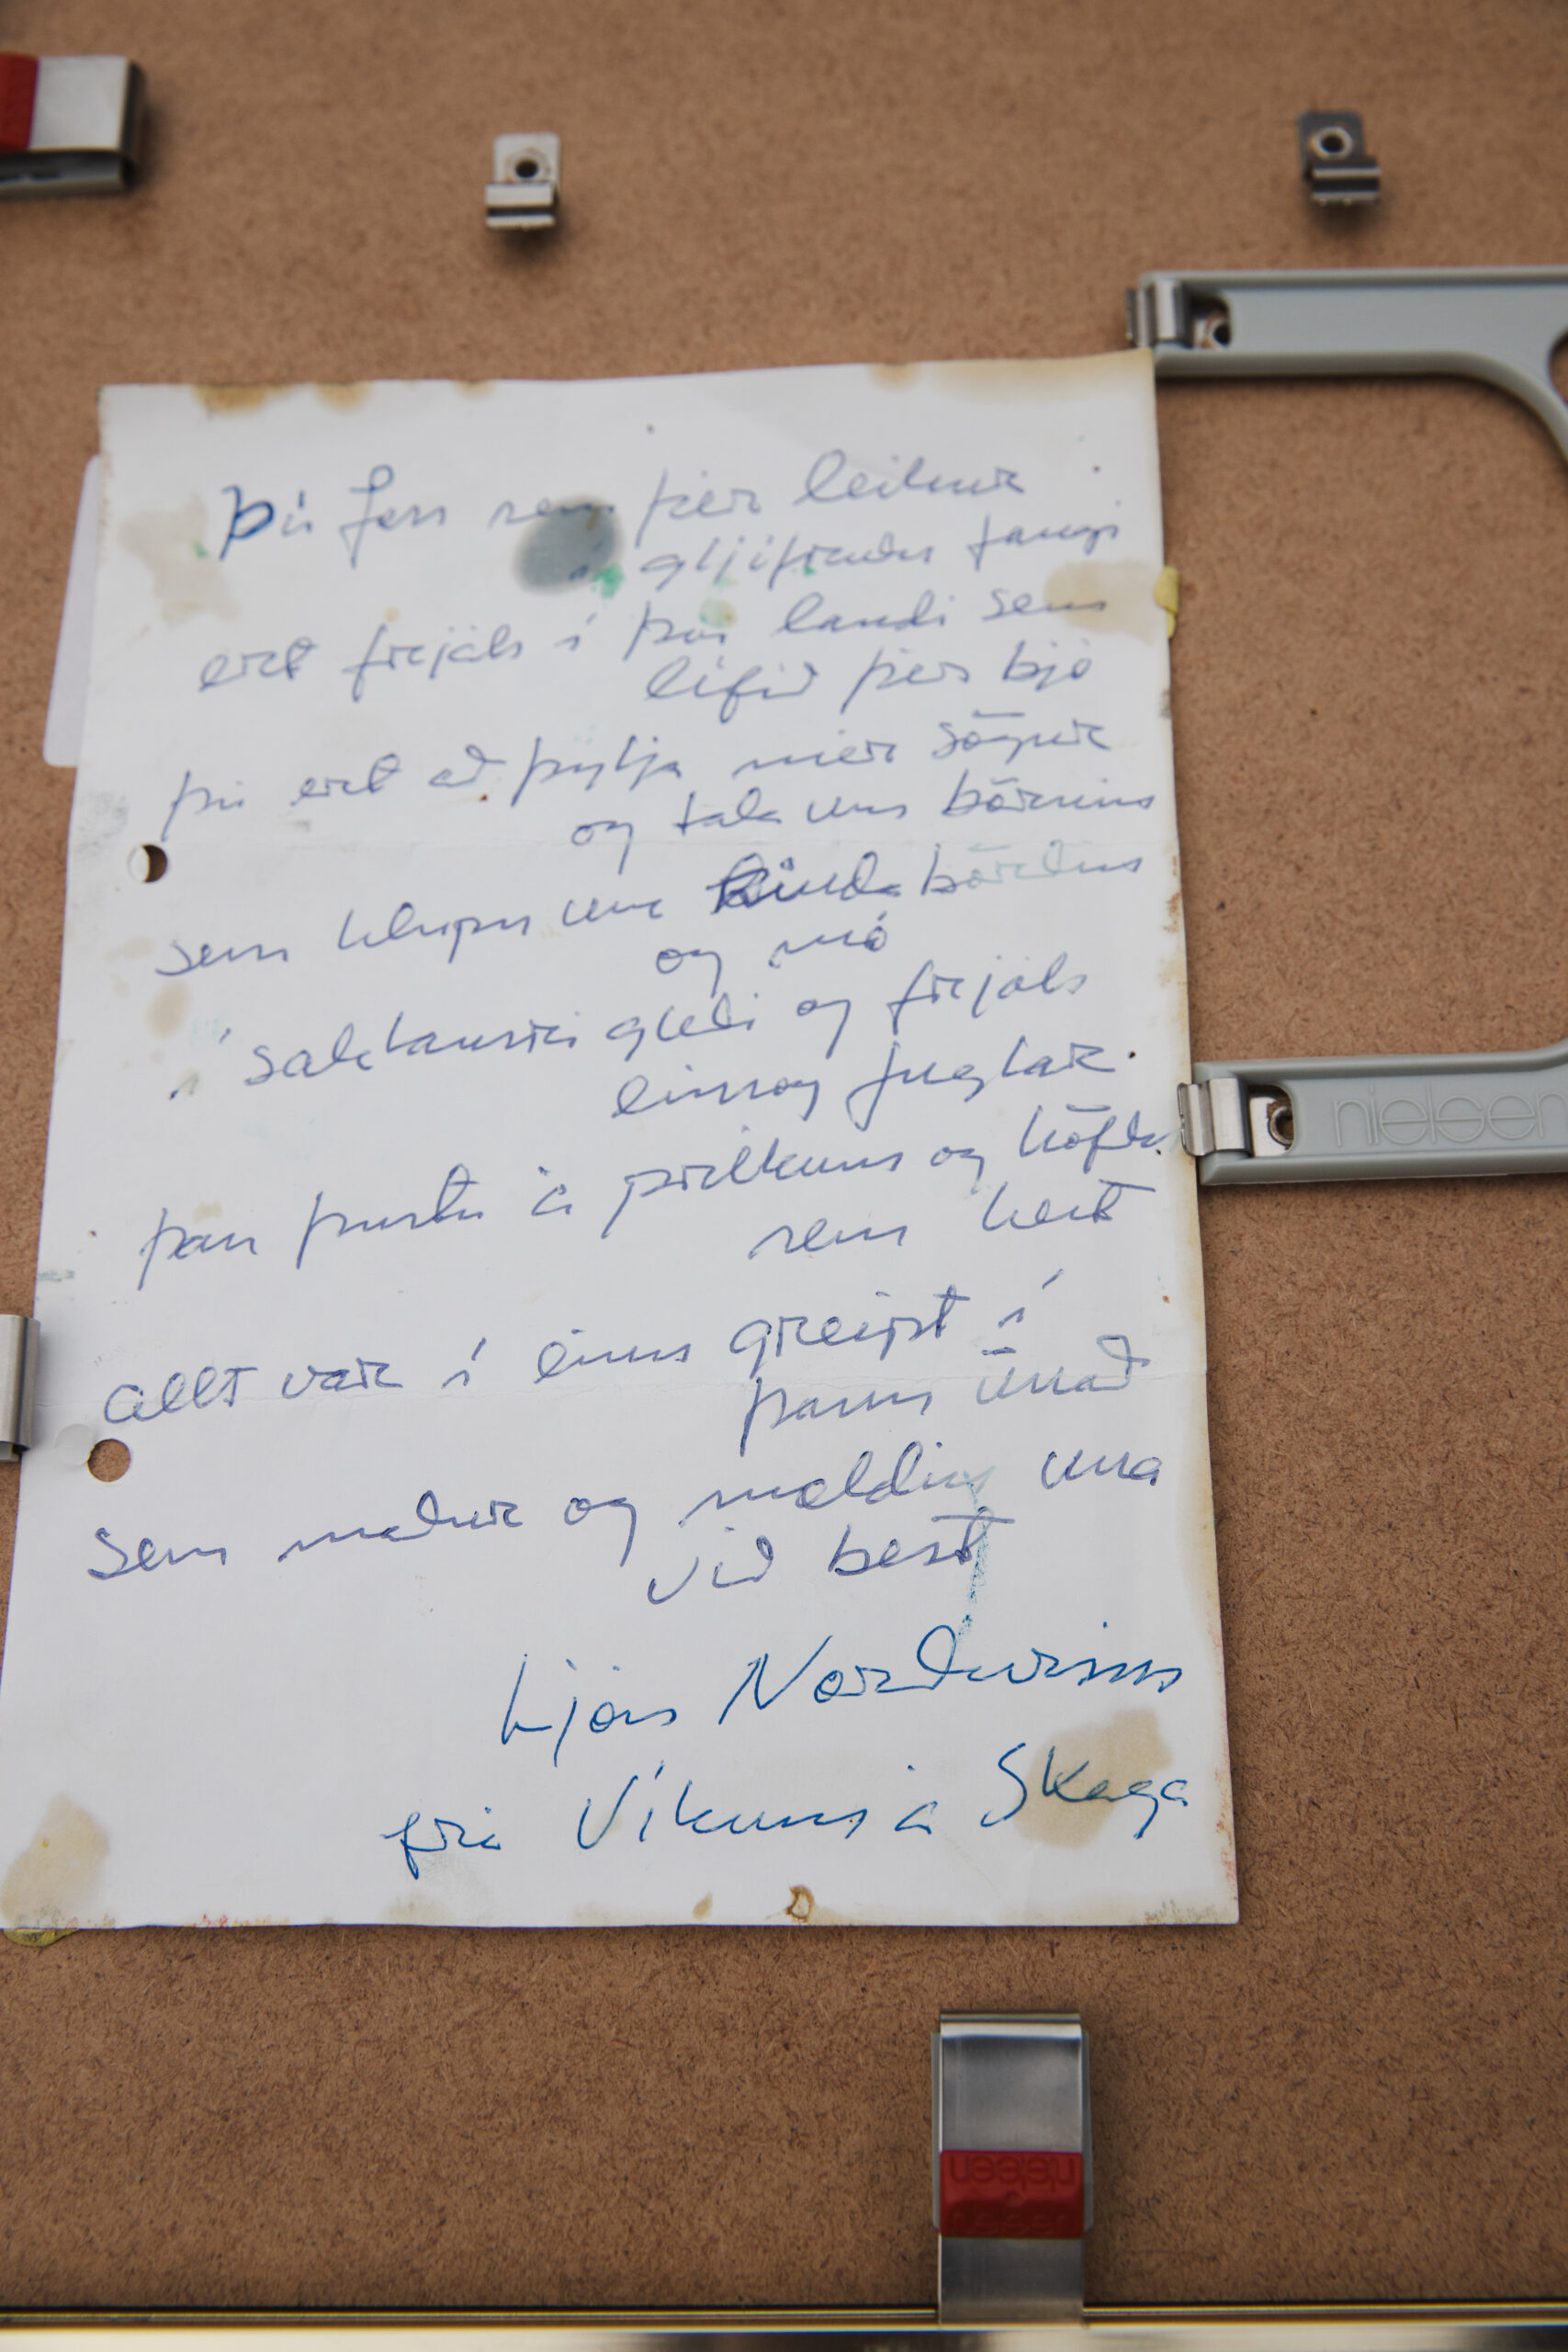 Þú foss sem þér leikur
í gljúfrudu fangi
ert frjáls í því landi sem
lífið þér bjó
þú ert að þylja mér sögur
og tala um börnin
sem hlupu um Rinda börðin
og mó
í saklausri gleði og frjáls
einsog fuglar.
þau þustu á prikum og höfðu
sem hest
allt var í einu greipt í
þann unað
sem maður og moldin una
við best
Ljón Norðursins
frá Víkum á Skaga
nielsen
nielsen